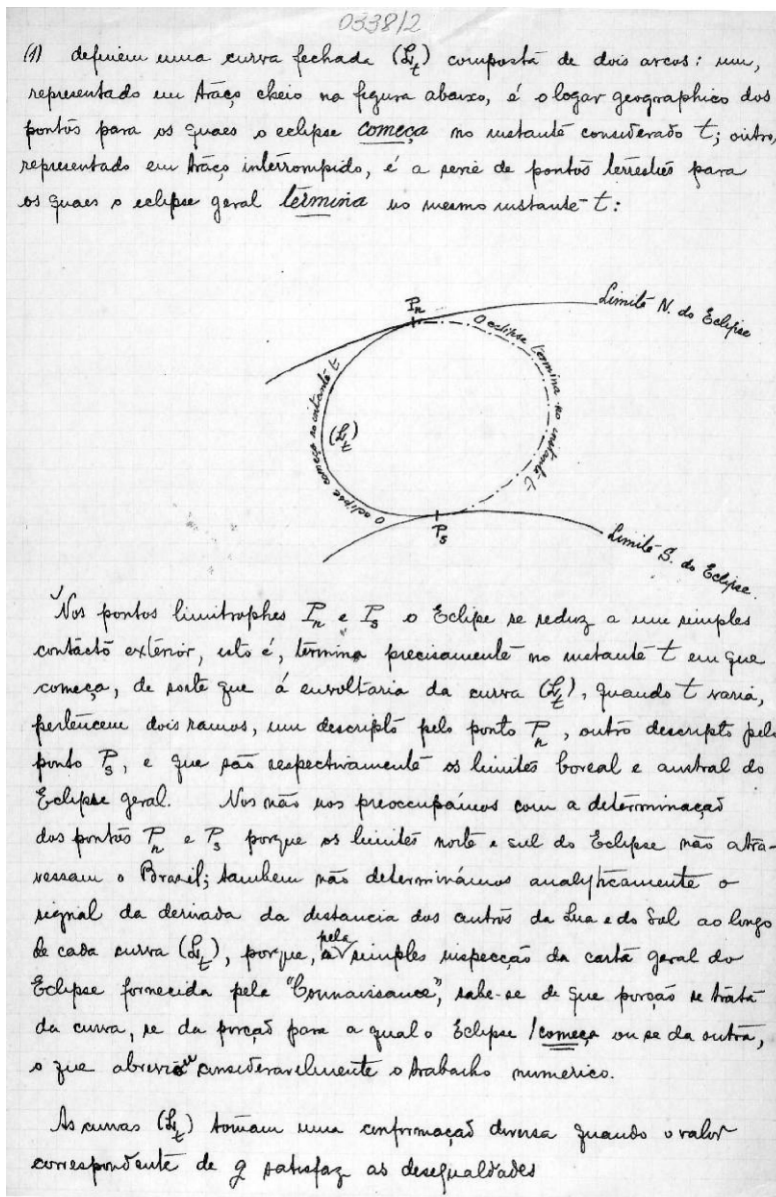 0338/2
(1) definem uma curva fechada (L_t) composta de dois arcos: um,
representado em traço cheio na figura abaixo, é o logar geographico dos
pontos para os quaes o eclipse começa no instante considerado t; outro,
representado em traço interrompido, é a serie de pontos terrestres para
os quaes o eclipse geral termina no mesmo instante t:
P_n
Limite N. do Eclipse
O eclipse termina no instante t
O eclipse começa no instante t
(L_t)
P_s
Limite S. do Eclipse.
Nos pontos limitrophes P_n e P_s o Eclipe se reduz a um simples
contacto exterior, isto é, termina precisamente no instante t em que
começa, de sorte que á envoltaria da curva (L_t), quando t varia,
pertencem dois ramos, um descripto pelo ponto P_n, outro descripto pelo
ponto P_s, e que são respectivamente os limites boreal e austral do
Eclipse geral. Nos não nos preoccupámos com a determinação
dos pontos P_n e P_s porque os limites norte e sul do Eclipse não atra-
vessam o Brazil; tambem não determinámos analyticamente o
signal da derivada da distancia dos centros da Lua e do Sol ao longo
de cada curva (L_t), porque, pela simples inspecção da carta geral do
Eclipse fornecida pela "Connaissance", sabe-se de que porção se trata
da curva, se da porção para a qual o Eclipse começa ou se da outra,
o que abrevia consideravelmente o trabalho numerico.
As curvas (L_t) tomam uma conformação diversa quando o valor
correspondente de g satisfaz as desegualdades